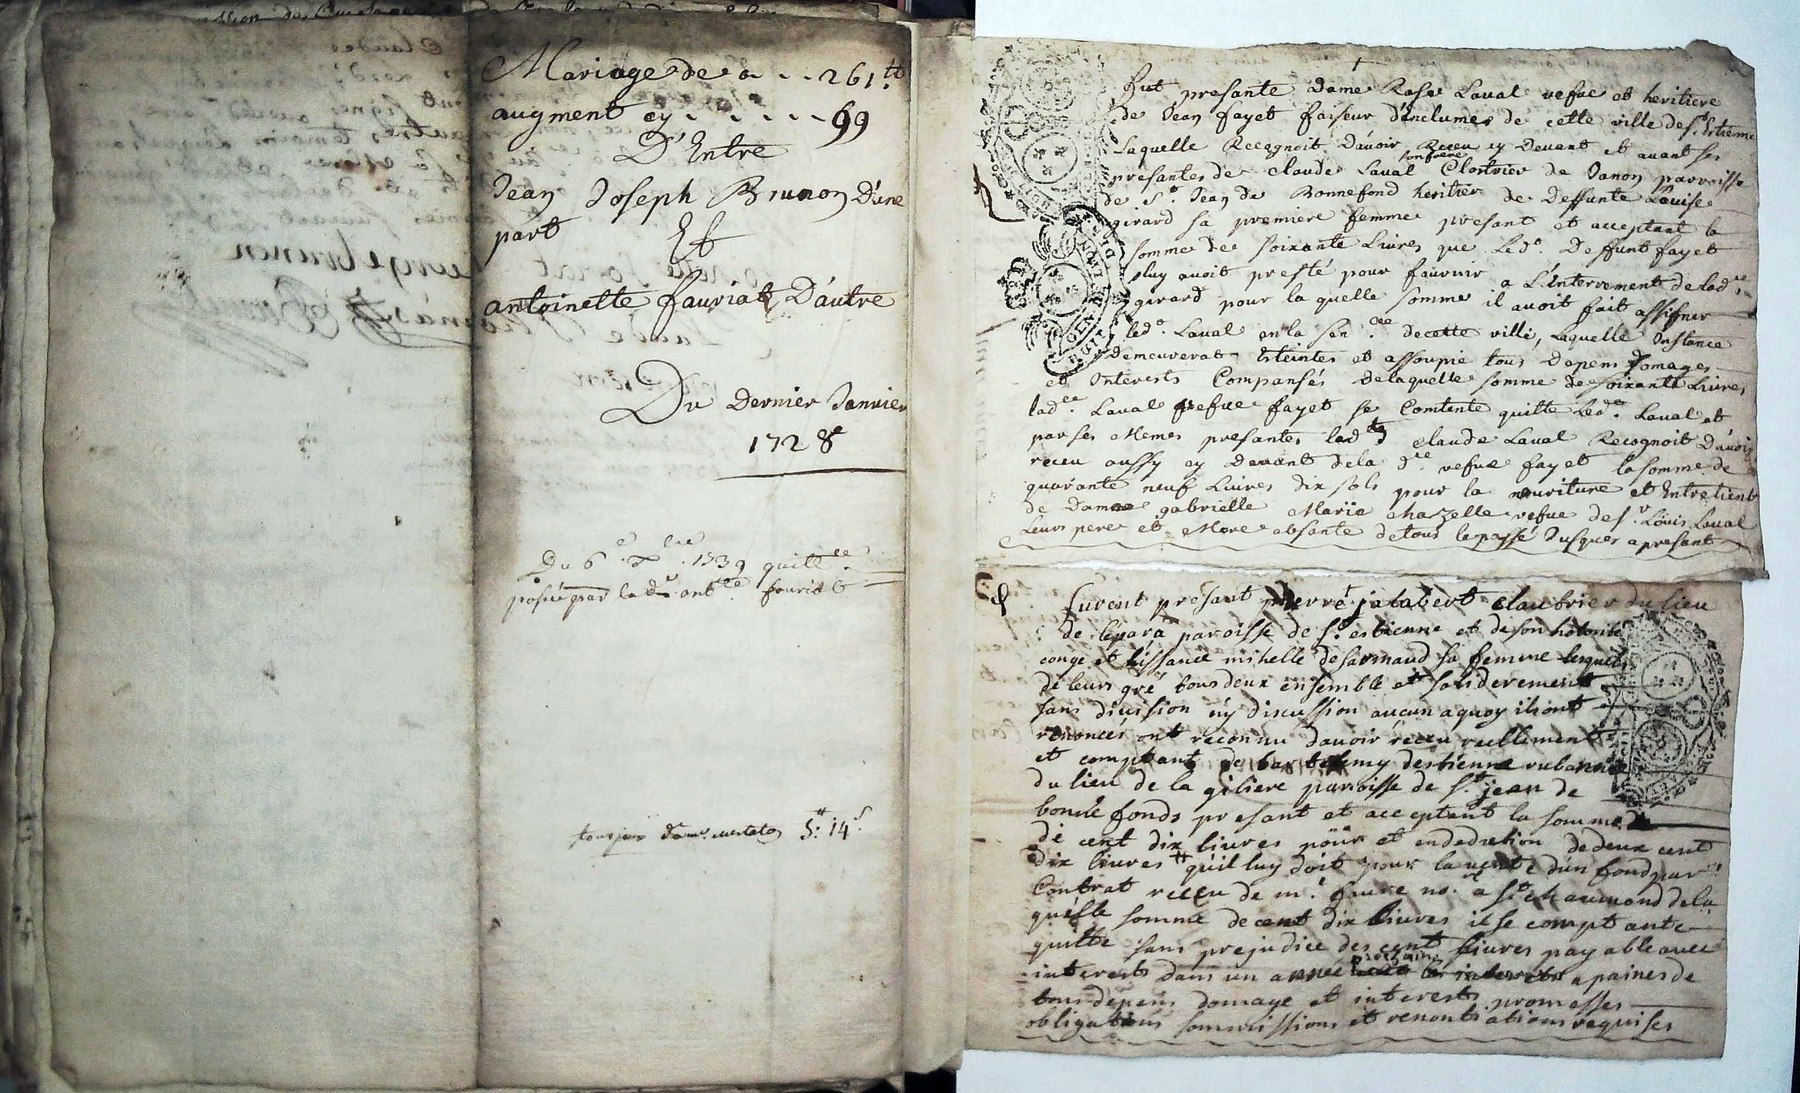 Mariage de a . . 261.tt
augment cy . . . . . . 99
D'Entre
Jean Joseph Brunon D'une
part Et
antoinette fauriat D'autre
Du Dernier Janvier
1728e
Du 6e 1739 quitt.ce
passé par la d. ant.tte fauriat
5.tt 14.s
fut presante dame Rose Laval vefue et heritiere
de Jean fayet faiseur d'enclumes de cette ville de St. Estienne
Laquelle Recognoit Dauoir Receu cy Deuant et auant ses
presantes de Claude Laval son frere Cloutrier de Janon parroisse
de St. Jean de Bonnefond heritier de Deffunte Louise
girard sa premiere femme present et acceptant la
somme de soixante Liures que Led.t Deffunt fayet
luy auoit presté pour fournir a L'Enterrement de lad.te
girard pour la quelle somme il auoit fait assigner
led.t Laval en la sen.cée de cette ville, Laquelle Instance
demeurerat Esteinte et assoupie tous Depens Domages
et Interests Compansés de laquelle somme de soixante Liures
lad.te Laval vefue fayet se Contente quitte Led.t Laval et
par ses Memes presantes led.t Claude Laval Recognoit Dauoir
receu aussy cy Deuant de la d.te vefue fayet la somme de
quarante neuf Liures dix sols pour la nouriture et Entretient
de Dame gabrielle Marie chazelle vefue de sr. Louis Laval
Leurs pere et Mere absante de tout le passé Jusques a presant
furent présant pierre jalabert Claubrier du lieu
de lepara paroisse de St. estienne et de son hotorité
conge et lissance mihelle desarmaud sa femme lesquels
de leurs gré tous deux ensemble et soliderement
sans division ny discussion aucun a quoy ils ont
renoncés ont reconnu dauoir receu reellement
et comptant de bartelemy destienne rubannier
du lieu de la giliere paroisse de St. jean de
bonne fonds presant et acceptant la somme
de cent dix liures pour et en dedution de deux cent
dix liures qu'il luy doit pour la vente d'un fond par
Contrat receu de mr. faure no.re a St. chaumond de la
quelle somme de cent dix liures il se comptante
quitte sans prejudice des cent liures payable auec
interests dans un année prochaine a paines de
tous depens domage et interests promesses
obligations soumissions et renontiations requises